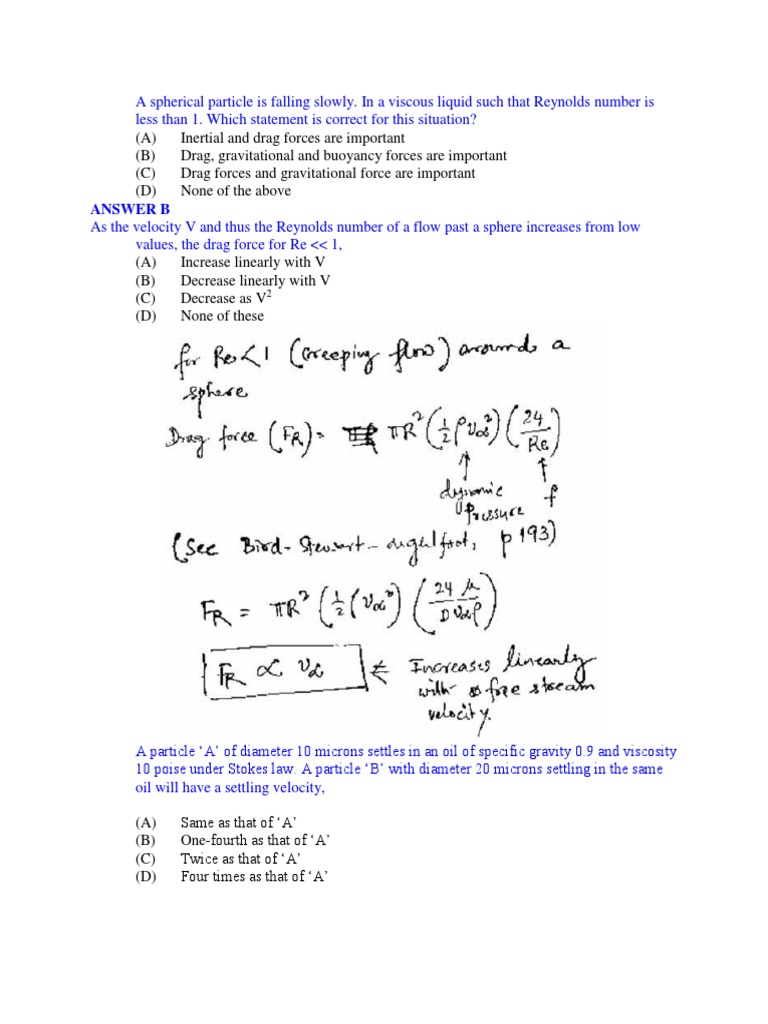 A spherical particle is falling slowly. In a viscous liquid such that Reynolds number is
less than 1. Which statement is correct for this situation?
(A) Inertial and drag forces are important
(B) Drag, gravitational and buoyancy forces are important
(C) Drag forces and gravitational force are important
(D) None of the above
ANSWER B
As the velocity V and thus the Reynolds number of a flow past a sphere increases from low
values, the drag force for Re << 1,
(A) Increase linearly with V
(B) Decrease linearly with V
(C) Decrease as V²
(D) None of these
for Re<1 (Creeping flow) around a
sphere
Drag force (F_R) = πR² (1/2 ρ v_∝²) (24/Re)
↑ ↑
dynamic f
pressure
(See Bird-Stewart-Lightfoot, p 193)
F_R = πR² (1/2 ρ v_∝²) (24 μ / D v_∝ ρ)
F_R ∝ v_∝ ⇐ Increases linearly
with free stream
velocity.
A particle ‘A’ of diameter 10 microns settles in an oil of specific gravity 0.9 and viscosity
10 poise under Stokes law. A particle ‘B’ with diameter 20 microns settling in the same
oil will have a settling velocity,
(A) Same as that of ‘A’
(B) One-fourth as that of ‘A’
(C) Twice as that of ‘A’
(D) Four times as that of ‘A’